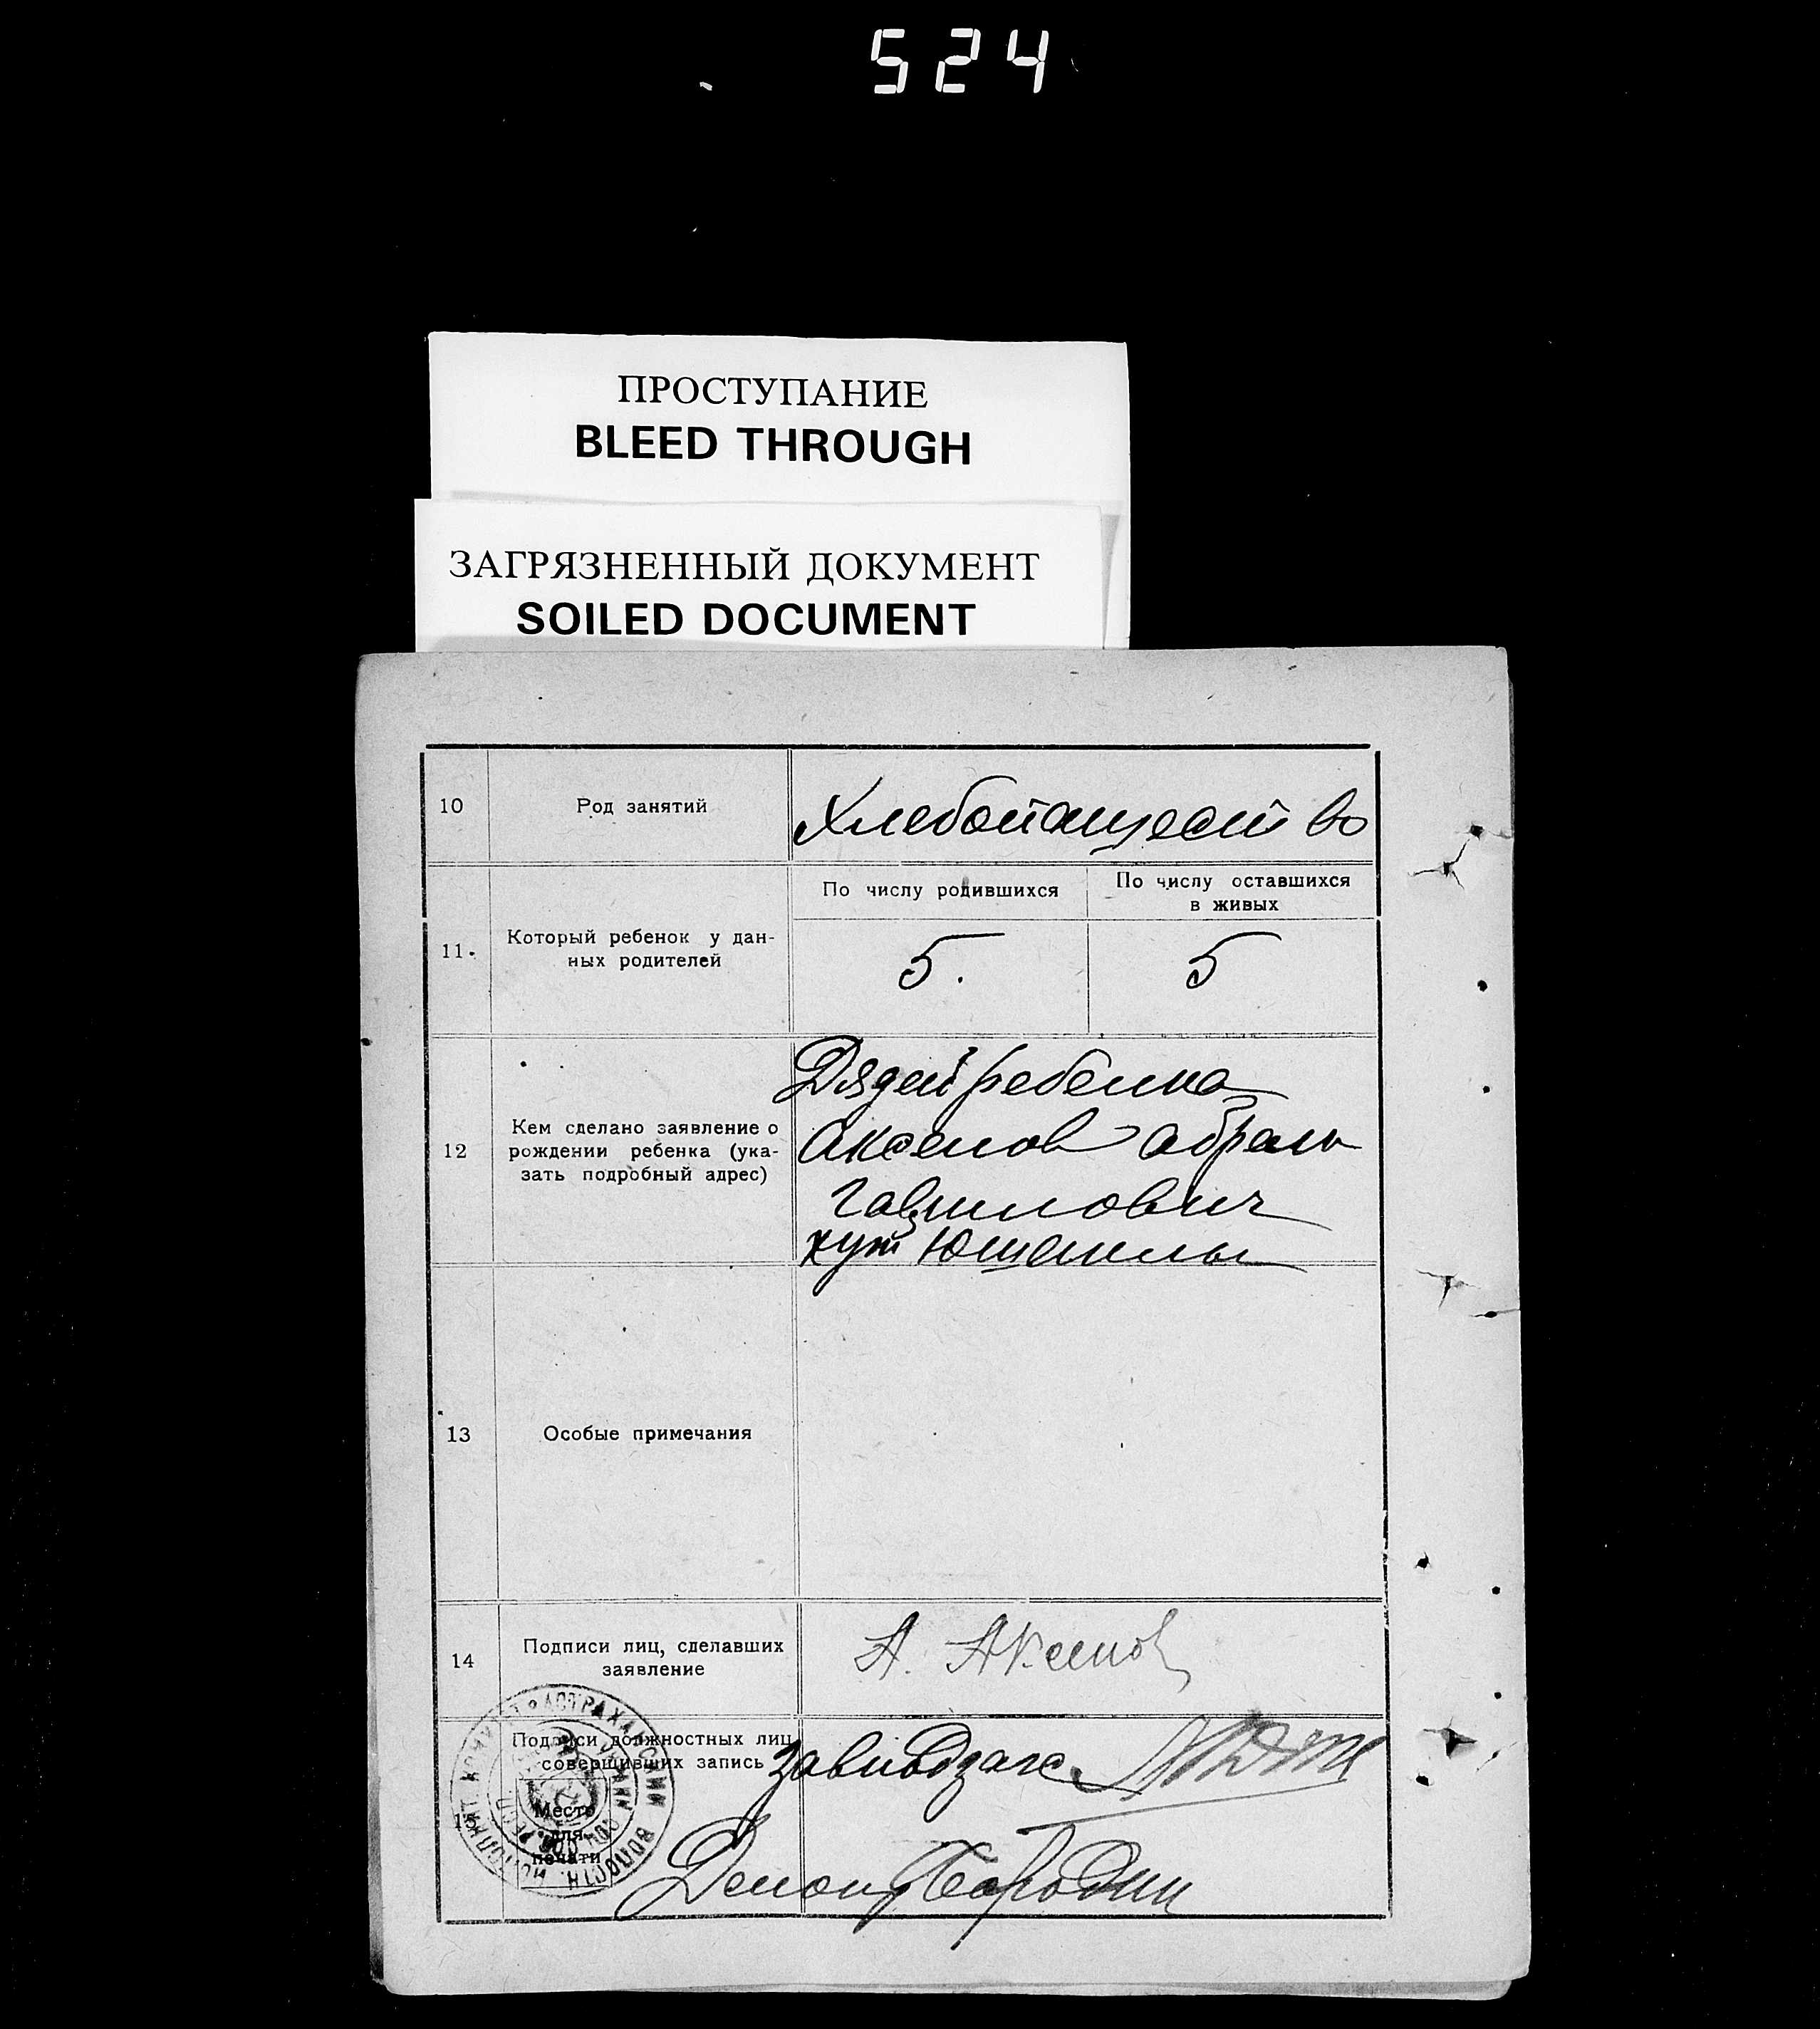 524
ПРОСТУПАНИЕ
BLEED THROUGH
ЗАГРЯЗНЕННЫЙ ДОКУМЕНТ
SOILED DOCUMENT
10 Род занятий Хлебопашество
По числу родившихся По числу оставшихся
в живых
11. Который ребенок у дан-
ных родителей
5. 5
12 Кем сделано заявление о
рождении ребенка (ука-
зать подробный адрес)
Дядей ребенка
Аксенов
Гаврилович
хут
13 Особые примечания
14 Подписи лиц, сделавших
заявление
А. Аксенов
15 Подписи должностных лиц,
совершивших запись
Место
для
печати
АСТРАХАНСКИЙ ВОЛОСТН. ИСПОЛНИТ. КОМИТЕТ
Делопр Бородин